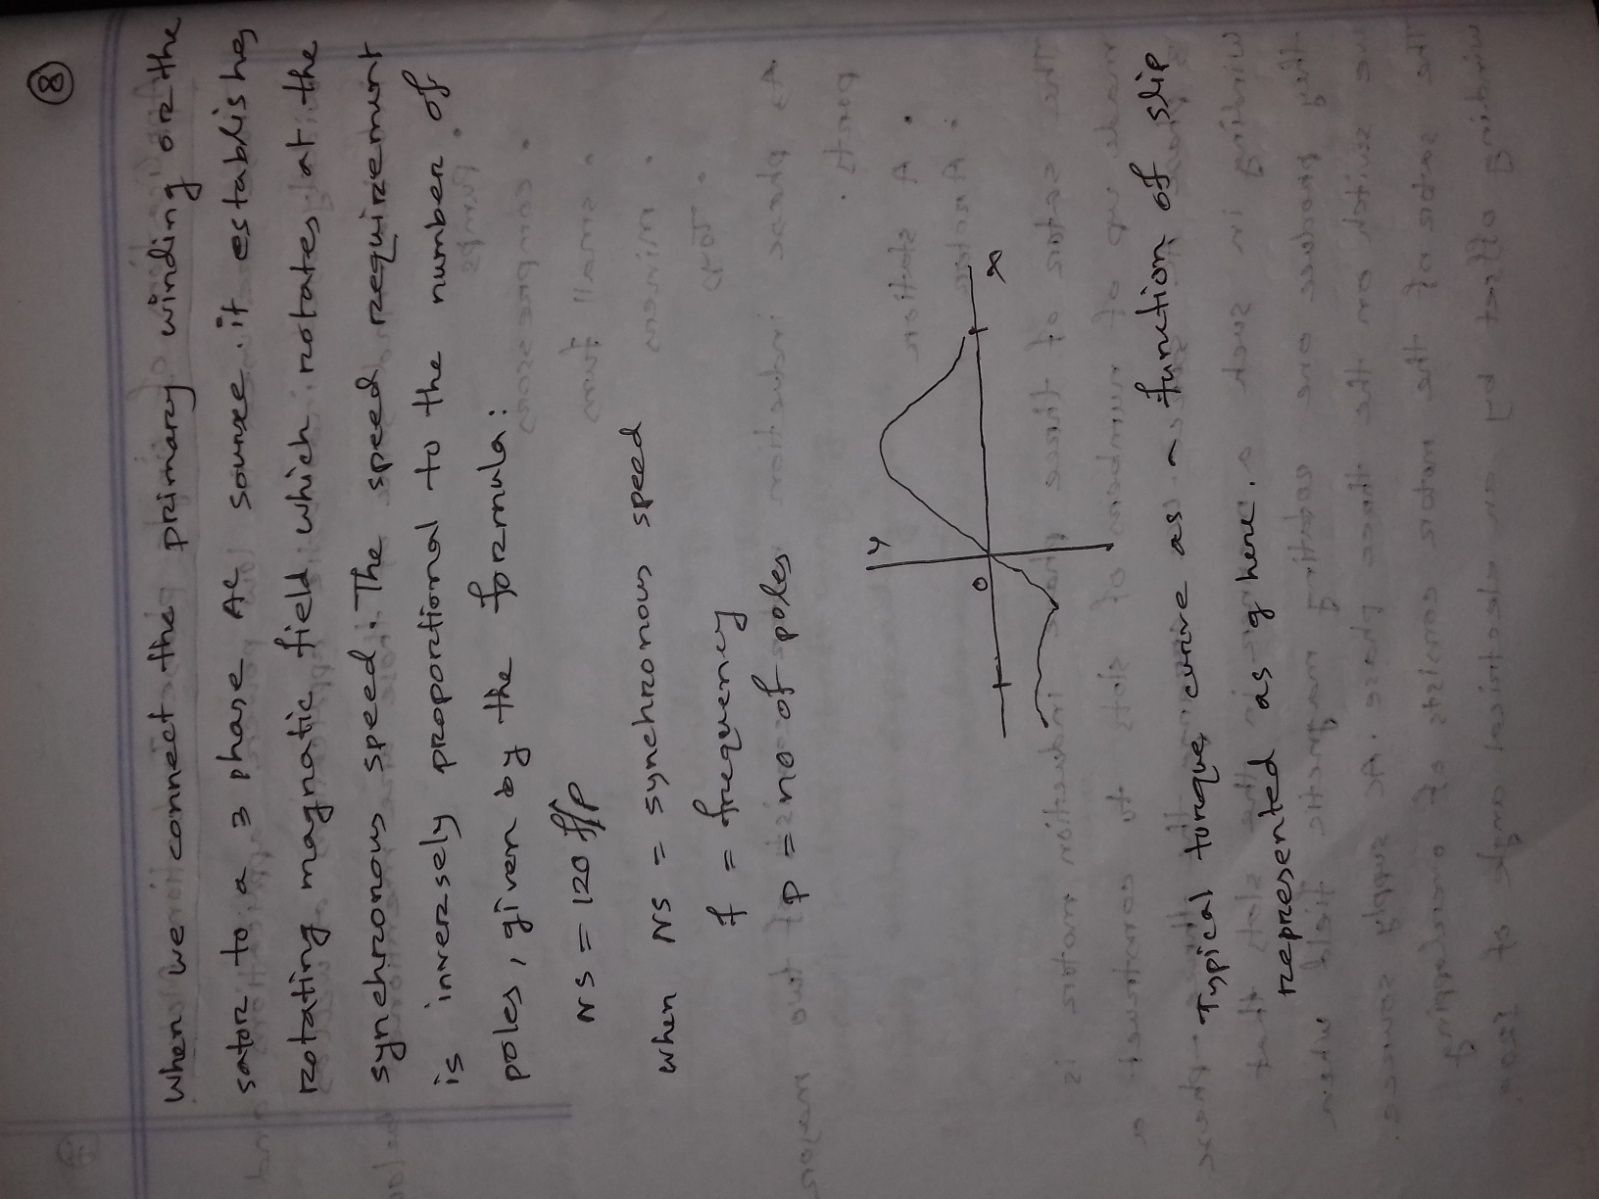 8
when we connect the primary winding or the
sator to a 3 phase AC source. it establishes
rotating magnatic field which rotates at the
synchronous speed. The speed requirement
is inversely proportional to the number of
poles, given by the formula:
NS = 120 f/p
when NS = synchronous speed
f = frequency
p = no of poles
y
0
x
Typical torque curve as a function of slip
represented as ghere.